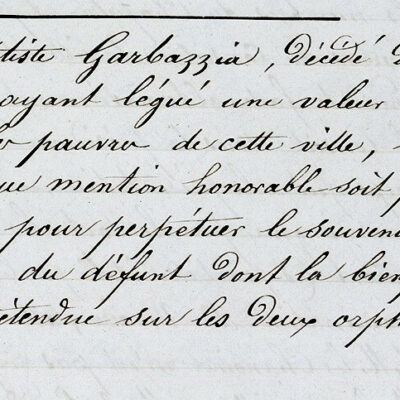 tiste Garbazzia, décédé d
ayant légué une valeur
pauvres de cette ville,
ue mention honorable soit p
pour perpétuer le souveni
du défunt dont la bien
étendue sur les deux orph